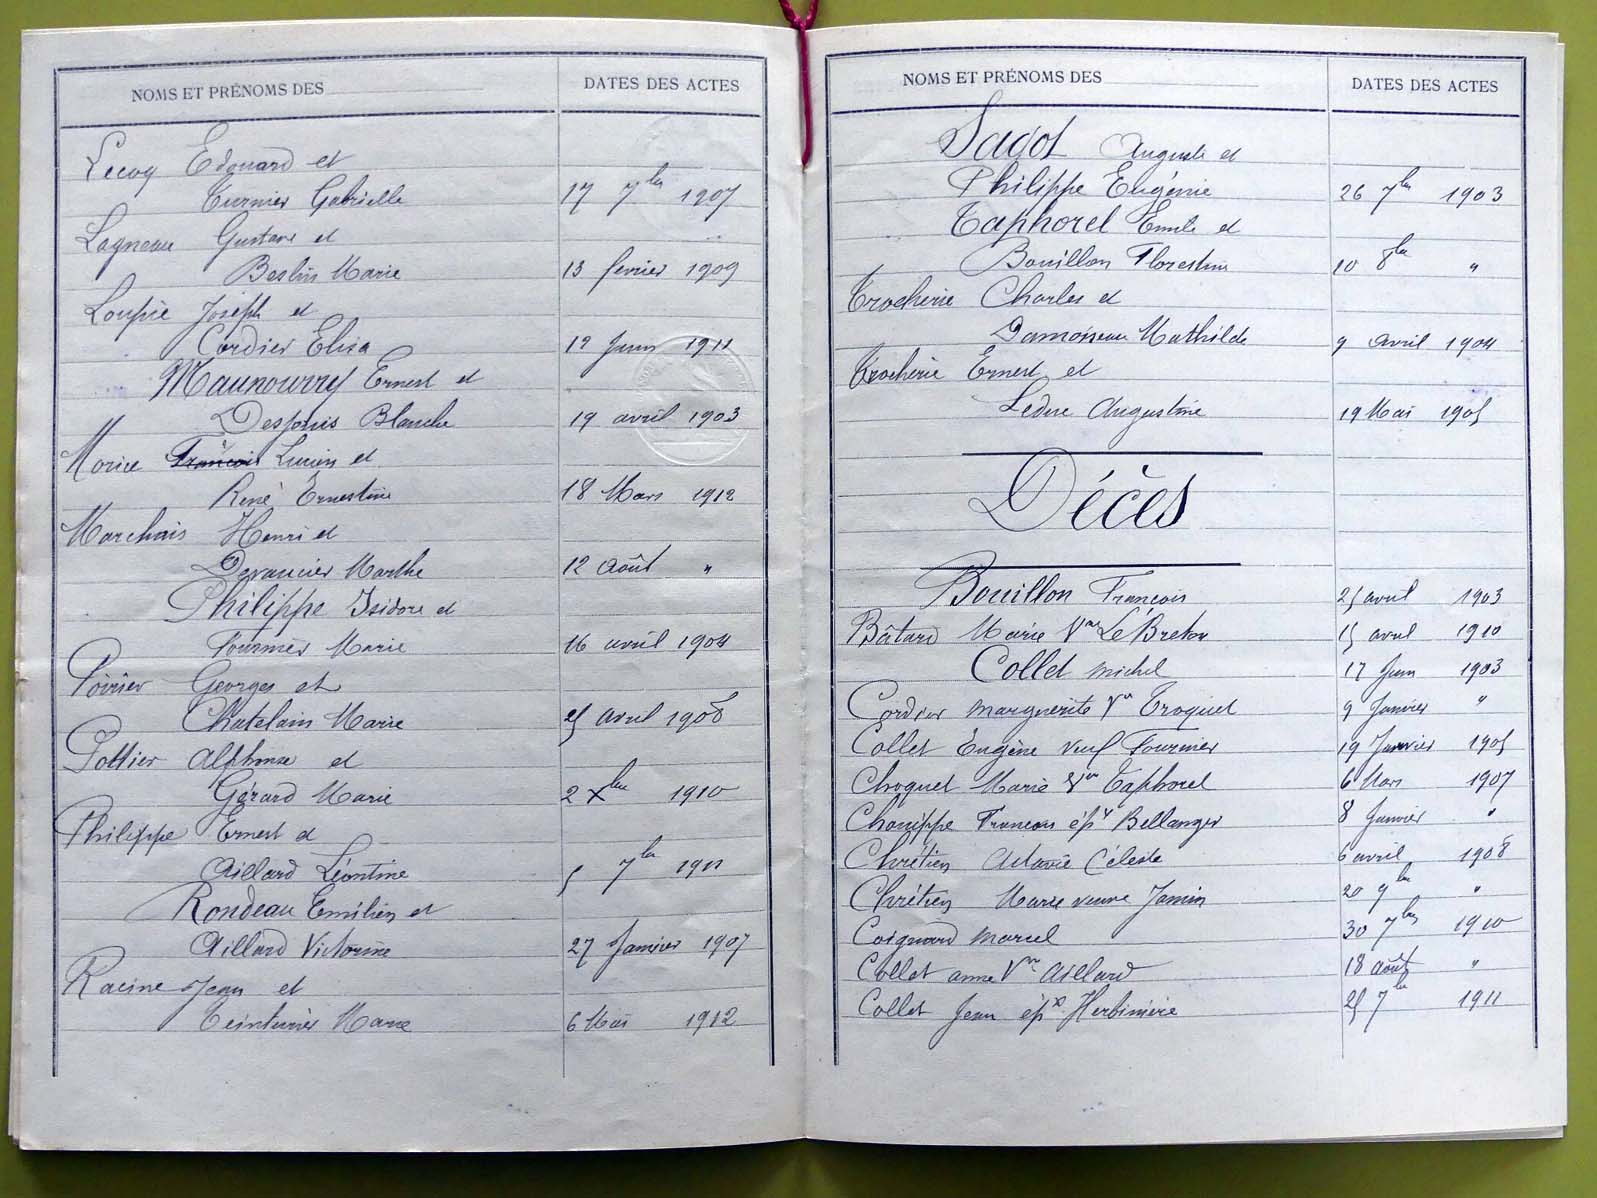 NOMS ET PRÉNOMS DES
DATES DES ACTES
Lecoq Edouard et
Turnier Gabrielle 17 7bre 1907
Lagneau Gustave et
Beslin Marie 13 février 1909
Loupie Joseph et
Cordier Elisa 12 Juin 1911
Maunourry Ernest et
Desponis Blanche 19 avril 1903
Morice François Lucien et
René Ernestine 18 Mars 1912
Marchais Henri et
Devancier Marthe 12 Août "
Philippe Isidore et
Fournier Marie 16 avril 1904
Poirier Georges et
Chatelain Marie 25 avril 1908
Pottier Alphonse et
Gérard Marie 2 Xbre 1910
Philippe Ernest et
Aillard Léontine 5 7bre 1911
Rondeau Emilien et
Aillard Victorine 27 Janvier 1907
Racine Jean et
Teinturier Marie 6 Mai 1912
NOMS ET PRÉNOMS DES
DATES DES ACTES
Sadot Auguste et
Philippe Eugénie 26 7bre 1903
Taphorel Emile et
Bouillon Florestine 10 8bre "
Trocherie Charles et
Damoiseau Mathilde 9 avril 1904
Trocherie Ernest et
Leduc Augustine 19 Mai 1905
Décès
Bouillon François 25 avril 1903
Bâtard Marie Vve Le Breton 15 avril 1910
Collet michel 17 Juin 1903
Cordier marguerite Vve Troquet 9 Janvier "
Collet Eugène veuf Fournier 19 Janvier 1905
Choquet Marie Vve Taphorel 6 Mars 1907
Chouippe François épx Bellanger 8 Janvier "
Chrétien Octavie Céleste 6 avril 1908
Chrétien Marie veuve Jamin 20 9bre "
Coignard marcel 30 7bre 1910
Collet anne Vve Aillard 18 août "
Collet Jean épx Herbinière 25 7bre 1911